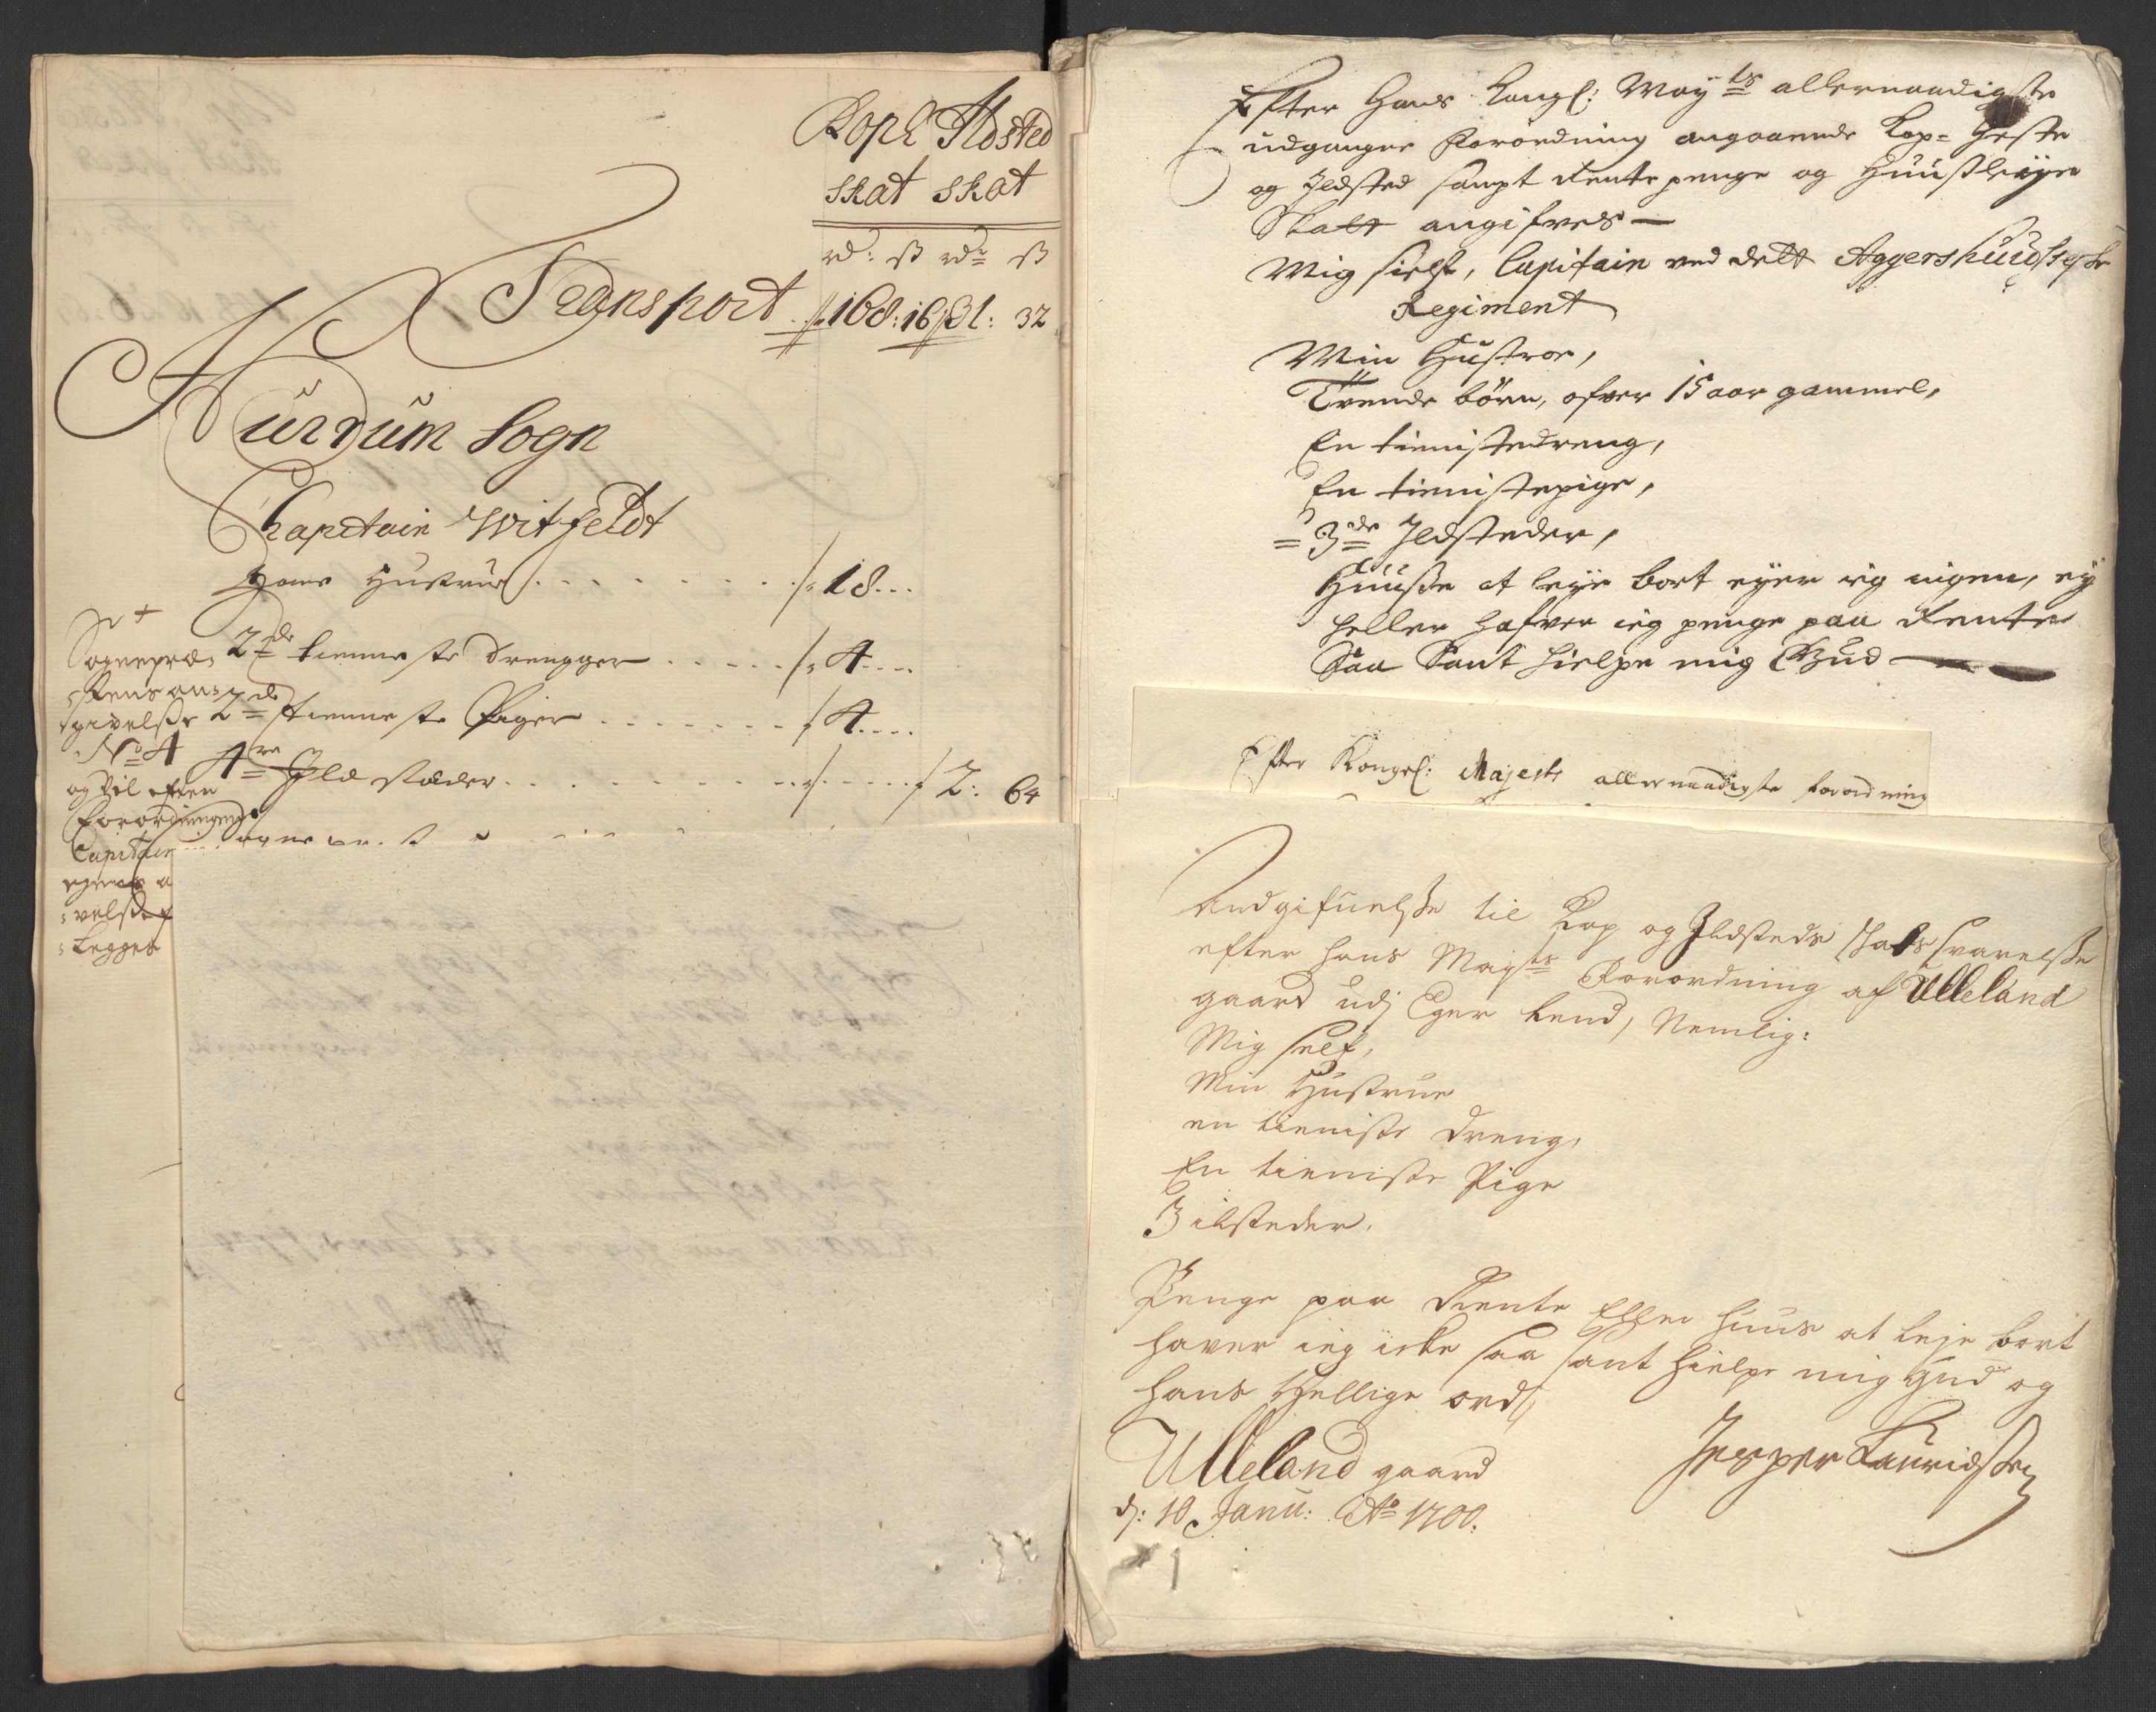 Kop: Ildsted
skat skat
rd: ß rdr ß
Transport 168:16 / 31: 32
Hurdum Sogn
Chapitain Witfeldt
Hans Hustrue 18
2de tienneste drengger 4
2de tienneste Piger 4
4re Ild stæder 2: 64
Sognepræ-
stens an-
givelsse
No 4
og Vil efter
Forordningens
Capitain
egene a
velsse
Legges
Efter Hans Kongl: Mayts allernaadigste
udgangne Forordning angaaende Kop- Heste
og Ildsted sampt Rente penge og Huusleye
Skatt angifves
Mig sielf, Capitain ved dett Aggershuusiske
Regiment
Min Hustroe,
Tvende børn, ofver 15 aar gammel,
En tienistedreng,
En tienistepige,
3de Ildsteder,
Huusse at leye bort eyer ieg ingen, ey
heller hafver ieg penge paa Rente
Saa Sant hielpe mig Gud
Efter Kongel: Majests allernaadigste forordning
Andgifuelsse til Kop og Ildsteds skats svarelsse
efter hans Mayts Forordning af Ulleland
gaard udj Eger Lend, Nemlig:
Mig self,
Min Hustrue
en tieniste Dreng,
En tieniste Pige
3 ilsteder.
Penge paa Rente Eller huus at leje bort
haver ieg icke saa sant hielpe mig Gud og
hans Hellige ord,
Ulleland gaard
Jesper Lauridssen
d: 10 Janu: Ao 1700.